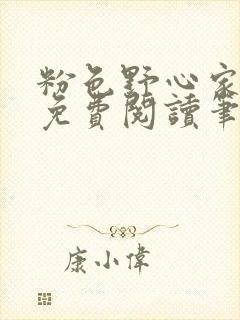 粉色野心家
免費閱讀筆
康小偉